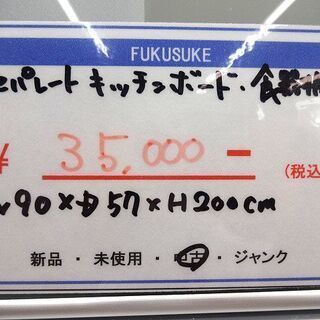 FUKUSUKE
セパレートキッチンボード・食器棚
¥ 35,000 - (税込
W90×D57×H200cm
新品・未使用・中古・ジャンク